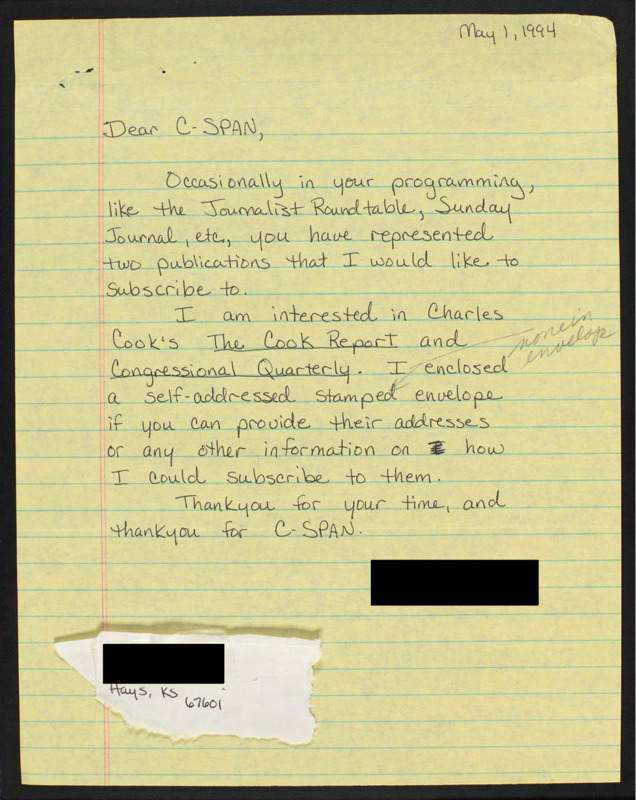 May 1, 1994
Dear C-SPAN,
Occasionally in your programming,
like the Journalist Roundtable, Sunday
Journal, etc, you have represented
two publications that I would like to
subscribe to.
I am interested in Charles
Cook's The Cook Report and
Congressional Quarterly. I enclosed
a self-addressed stamped envelope
if you can provide their addresses
or any other information on how
I could subscribe to them.
Thankyou for your time, and
thankyou for C-SPAN.
none in
envelope
Hays, KS
67601